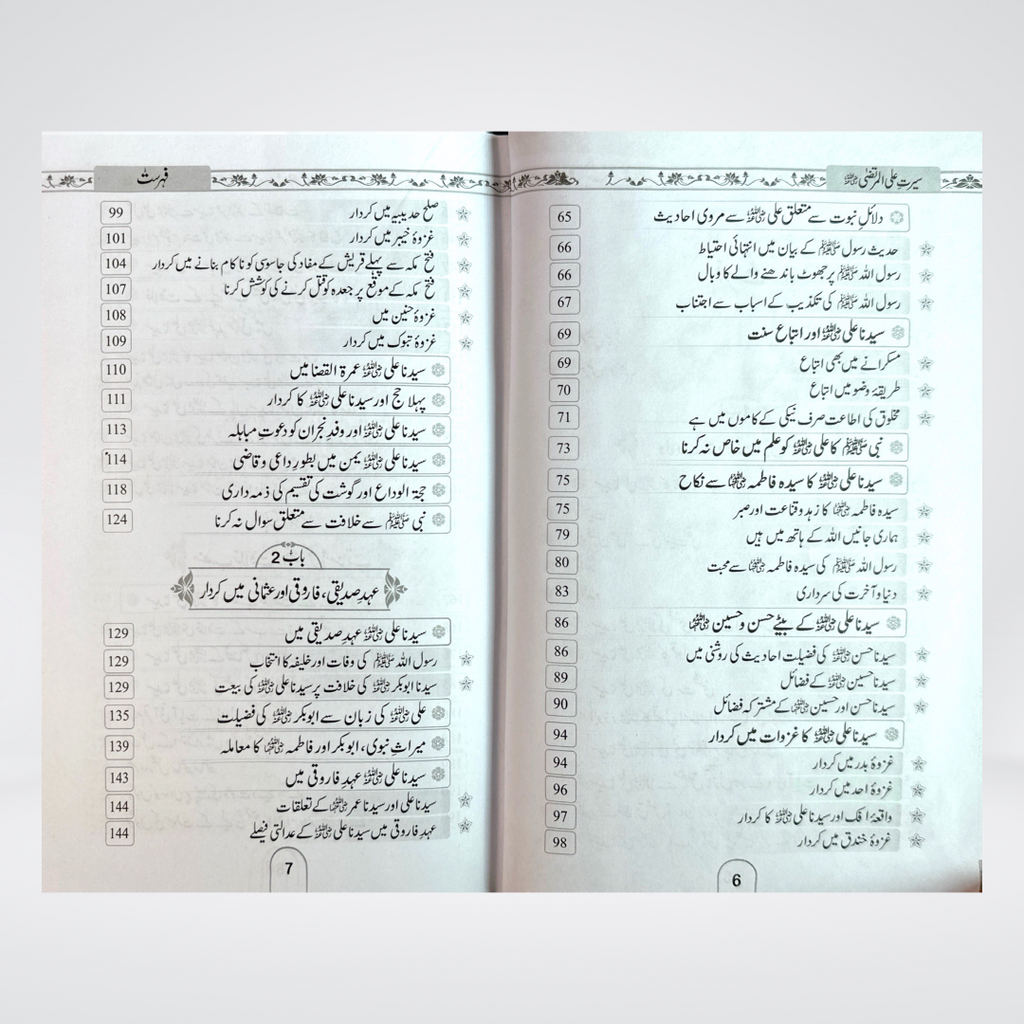 سیرتِ علی المرتضیٰ رضی اللہ عنہ
دلائلِ نبوت سے متعلق علی رضی اللہ عنہ سے مروی احادیث 65
حدیث رسول ﷺ کے بیان میں انتہائی احتیاط 66
رسول اللہ ﷺ پر جھوٹ باندھنے والے کا وبال 66
رسول اللہ ﷺ کی تکذیب کے اسباب سے اجتناب 67
سیدنا علی رضی اللہ عنہ اور اتباع سنت 69
مسکرانے میں بھی اتباع 69
طریقۂ وضو میں اتباع 70
مخلوق کی اطاعت صرف نیکی کے کاموں میں ہے 71
نبی ﷺ کا علی رضی اللہ عنہ کو علم میں خاص نہ کرنا 73
سیدنا علی رضی اللہ عنہ کا سیدہ فاطمہ رضی اللہ عنہا سے نکاح 75
سیدہ فاطمہ رضی اللہ عنہا کا زہد و قناعت اور صبر 75
ہماری جانیں اللہ کے ہاتھ میں ہیں 79
رسول اللہ ﷺ کی سیدہ فاطمہ رضی اللہ عنہا سے محبت 80
دنیا و آخرت کی سرداری 83
سیدنا علی رضی اللہ عنہ کے بیٹے حسن و حسین رضی اللہ عنہما 86
سیدنا حسن رضی اللہ عنہ کی فضیلت احادیث کی روشنی میں 86
سیدنا حسین رضی اللہ عنہ کے فضائل 89
سیدنا حسن اور حسین رضی اللہ عنہما کے مشترکہ فضائل 90
سیدنا علی رضی اللہ عنہ کا غزوات میں کردار 94
غزوۂ بدر میں کردار 94
غزوۂ احد میں کردار 96
واقعۂ افک اور سیدنا علی رضی اللہ عنہ کا کردار 97
غزوۂ خندق میں کردار 98
6
فہرست
صلح حدیبیہ میں کردار 99
غزوۂ خیبر میں کردار 101
فتح مکہ سے پہلے قریش کے مفاد کی جاسوسی کو ناکام بنانے میں کردار 104
فتح مکہ کے موقع پر جعدہ کو قتل کرنے کی کوشش کرنا 107
غزوۂ حنین میں 108
غزوۂ تبوک میں کردار 109
سیدنا علی رضی اللہ عنہ عمرۃ القضا میں 110
پہلا حج اور سیدنا علی رضی اللہ عنہ کا کردار 111
سیدنا علی رضی اللہ عنہ اور وفدِ نجران کو دعوتِ مباہلہ 113
سیدنا علی رضی اللہ عنہ یمن میں بطورِ داعی و قاضی 114
حجۃ الوداع اور گوشت کی تقسیم کی ذمہ داری 118
نبی ﷺ سے خلافت سے متعلق سوال نہ کرنا 124
باب 2
عہدِ صدیقی، فاروقی اور عثمانی میں کردار
سیدنا علی رضی اللہ عنہ عہدِ صدیقی میں 129
رسول اللہ ﷺ کی وفات اور خلیفہ کا انتخاب 129
سیدنا ابوبکر رضی اللہ عنہ کی خلافت پر سیدنا علی رضی اللہ عنہ کی بیعت 129
علی رضی اللہ عنہ کی زبان سے ابوبکر رضی اللہ عنہ کی فضیلت 135
میراثِ نبوی، ابوبکر اور فاطمہ رضی اللہ عنہما کا معاملہ 139
سیدنا علی رضی اللہ عنہ عہدِ فاروقی میں 143
سیدنا علی اور سیدنا عمر رضی اللہ عنہما کے تعلقات 144
عہدِ فاروقی میں سیدنا علی رضی اللہ عنہ کے عدالتی فیصلے 144
7